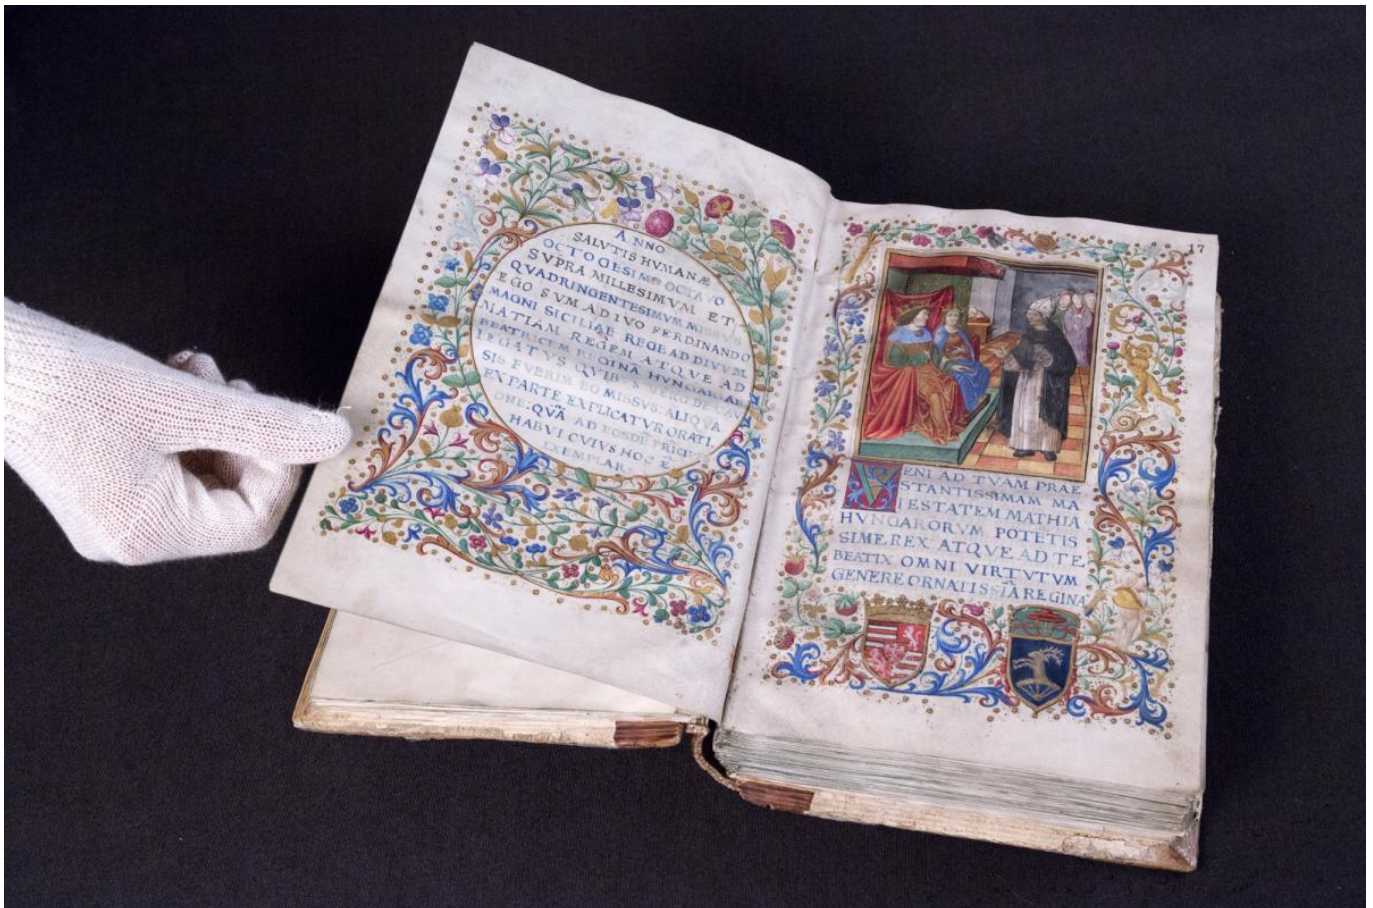 ANNO
SALVTIS HVMANÆ
OCTOGESIMO OCTAVO
SVPRA MILLESIMVM ET
QVADRINGENTESIMVM MISSVS
EGO SVM A DIVO FERDINANDO
MAGNI SICILIAE REGE AD DIVVM
MATIAM REGEM ATQVE AD
BEATRICEM REGINĀ HVNGARIAE
LEGATVS QVIBVS VERO DE CAV
SIS FVERIM EO MISSVS ALIQVA
EX PARTE EXPLICATVR ORATI
ONE QVĀ AD EOSDĒ PRĪCIPES
HABVI CVIVS HOC Ē
EXEMPLAR
17
VENI AD TVAM PRAE
STANTISSIMAM MA
IESTATEM MATHIA
HVNGARORVM POTETIS
SIME REX ATQVE AD TE
BEATIX OMNI VIRTVTVM
GENERE ORNATISSĪA REGINA